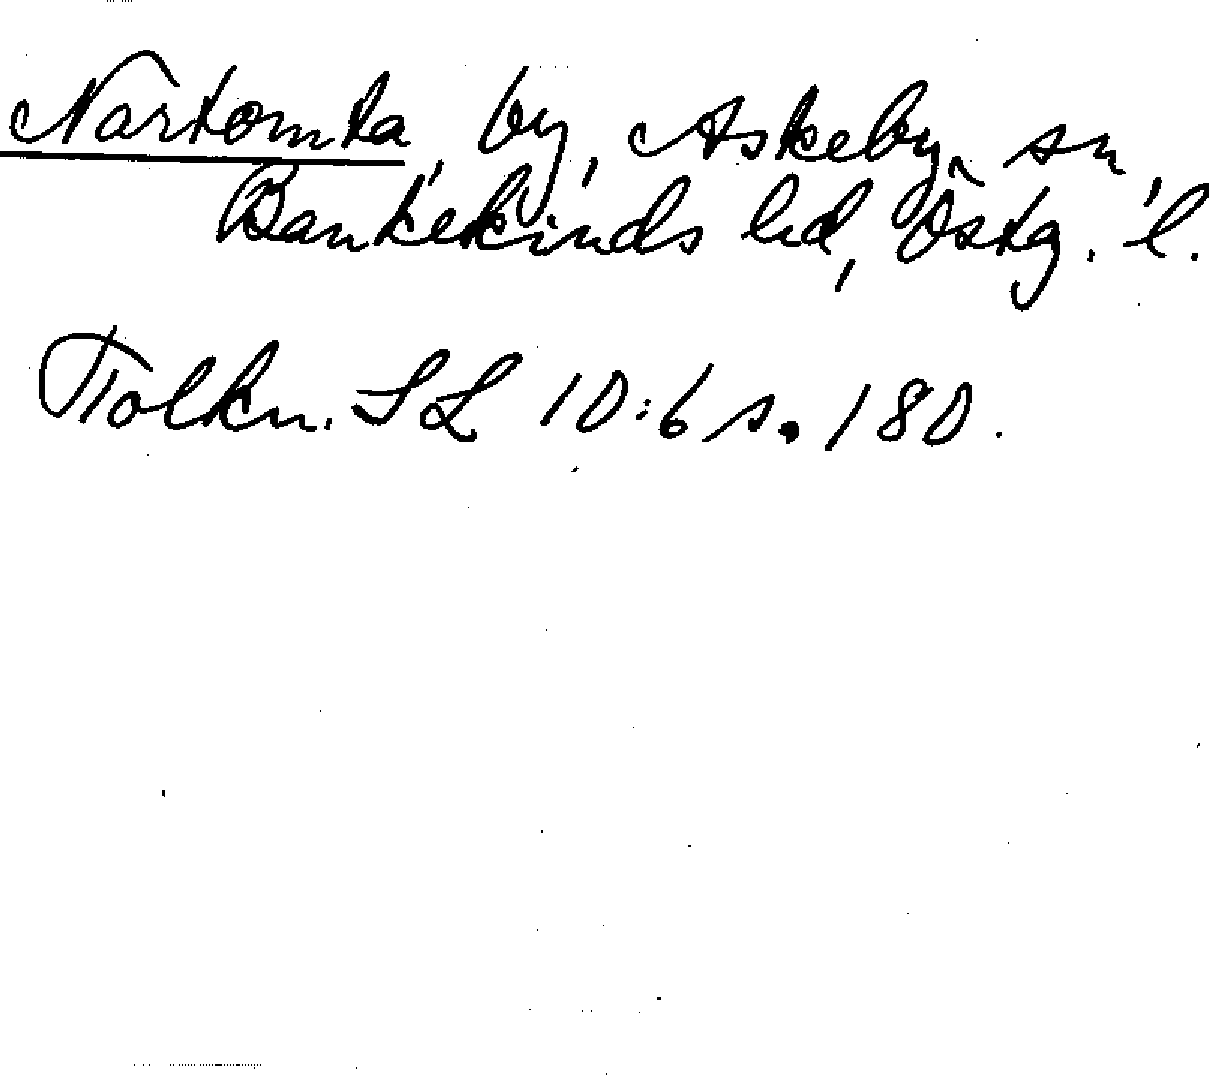 Nartomta, by, Askeby sn,
Bankekinds hd, Östg. l.
Tolkn. SL 10:6 s. 180.